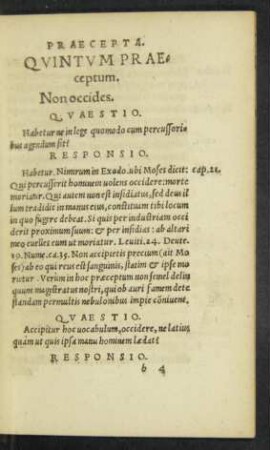 PRAECEPTA.
QVINTVM PRAE-
ceptum.
Non occides.
QVAESTIO.
Habetur ne in lege quomodo cum percussori-
bus agendum sit?
RESPONSIO.
Habetur. Nimirum in Exodo. ubi Moses dicit: cap. 21.
Qui percusserit hominem uolens occidere: morte
moriatur. Qui autem non est insidiatus, sed deus il
lum tradidit in manus eius, constituam tibi locum
in quo fugere debeat. Si quis per industriam occi
derit proximum suum: & per insidias: ab altari
meo euelles eum ut moriatur. Leuiti. 24. Deute.
19. Nume. ca. 35. Non accipietis precium (ait Mo
ses) ab eo qui reus est sanguinis, statim & ipse mo
rietur. Verum in hoc præceptum non semel delin
quum magistratus nostri, qui ob auri famem dete
standam permultis nebulonibus impie cōniuent.
QVAESTIO.
Accipitur hoc uocabulum, occidere, ne latius
quàm ut quis ipsa manu hominem lædat?
RESPONSIO.
b 4